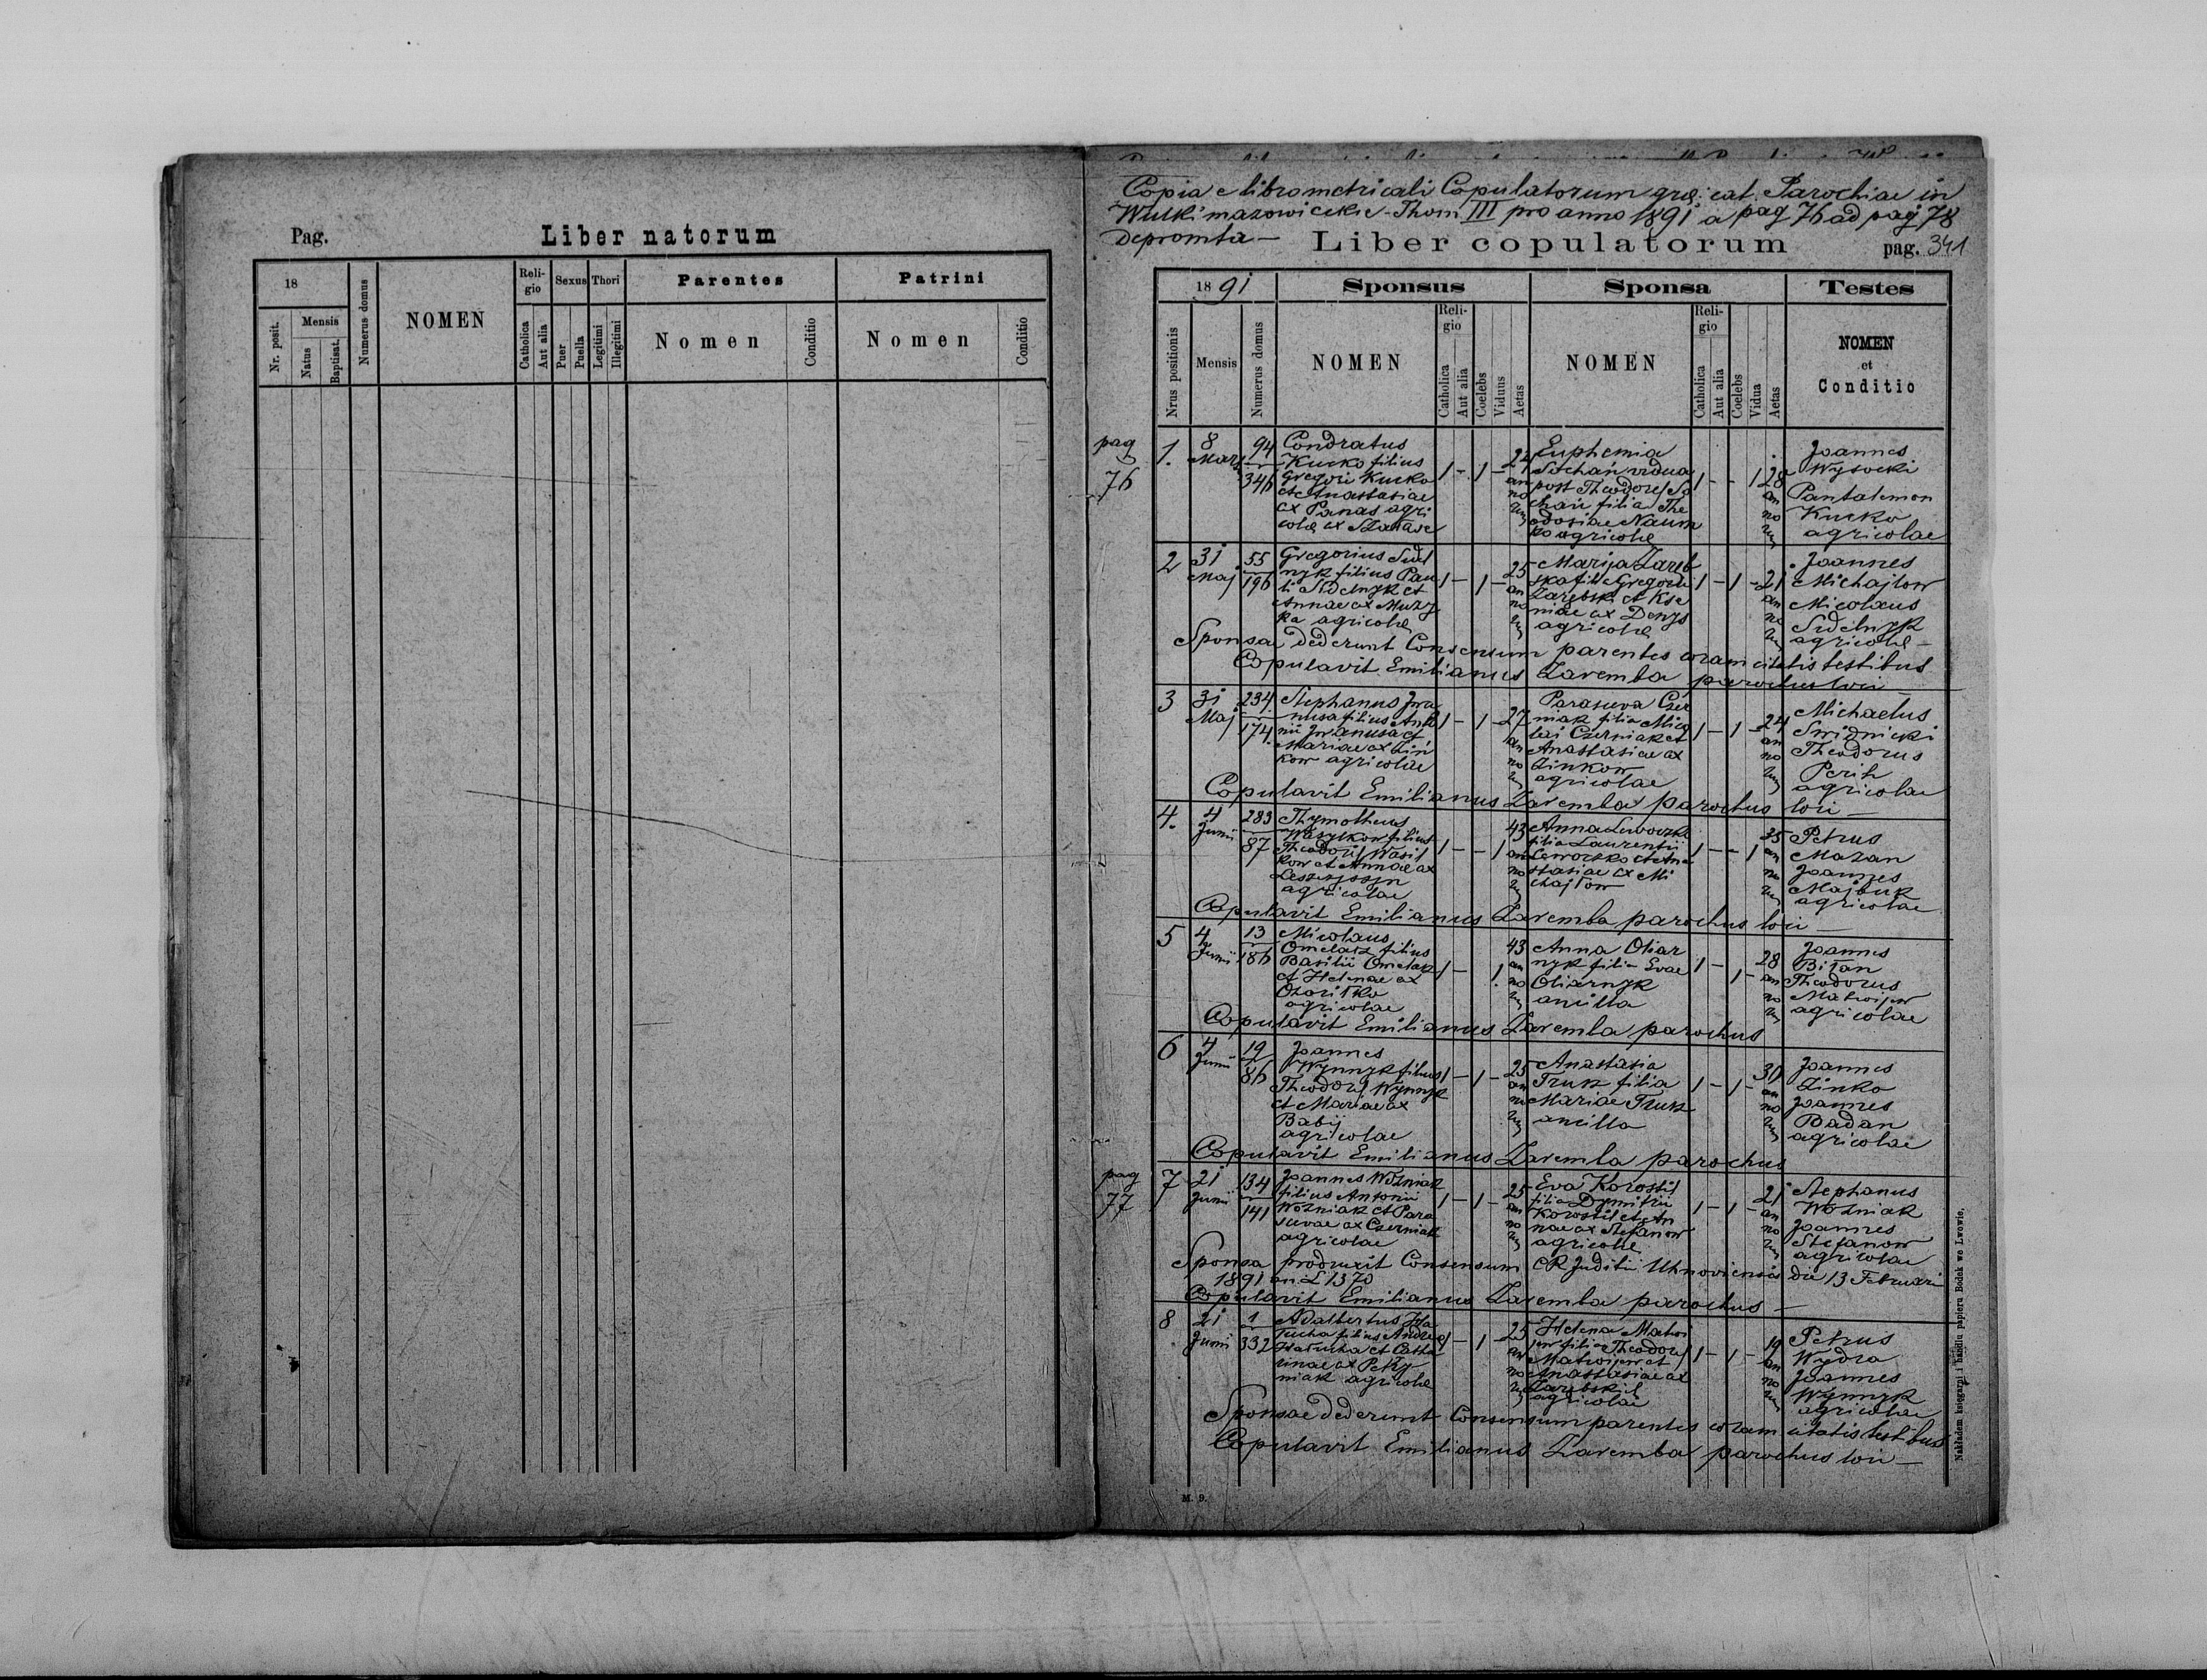 Pag.
Liber natorum
18
Nr. posit.
Mensis
Natus
Baptisat.
Numerus domus
NOMEN
Reli-
gio
Catholica
Aut alia
Sexus
Puer
Puella
Thori
Legitimi
Illegitimi
Parentes
Nomen
Conditio
Patrini
Nomen
Conditio
Copia e libro metricali Copulatorum gr. cat. Parochiae in
Wulki mazowieckie Thom III pro anno 1891 a pag 76 ad pag 78
depromta —
Liber copulatorum
pag. 341
1891
Nrus positionis
Mensis
Numerus domus
Sponsus
NOMEN
Reli-
gio
Catholica
Aut alia
Coelebs
Viduus
Aetas
Sponsa
NOMEN
Reli-
gio
Catholica
Aut alia
Coelebs
Vidua
Aetas
Testes
NOMEN
et
Conditio
pag
76
1.
8
94
346
Condratus
Kucko filius
Gregorii Kucko
et Anastasiae
ex Panas agri
colae
1 - 1 - 24
an
no
rum
Euphemia
Sochań vidua
post Theodor So
chań filia The
odosiae Naum
ko agricolae
1 - - 1 28
an
no
rum
Joannes
Wysocki
Pantalemon
Kucko
agricolae
2
31
Maj
55
196
Gregorius Sidel
nyk filius Pau
li Sidelnyk et
Annae ex Muzy
ka agricolae
1 - 1 - 25
an
no
rum
Marija Zaręb
ska filia Gregorii
Zarębski et Kse
niae ex Denys
agricolae
1 - 1 - 21
an
no
rum
Joannes
Michajłow
Nicolaus
Sidelnyk
agricolae
Sponsa dederunt Consensum parentes coram citatis testibus
Copulavit Emilianus Zaremba parochus loci —
3
31
Maj
234
174
Stephanus Iwa
nusa filius Anto
nii Iwanusa et
Mariae ex Zin
kow agricolae
1 - 1 - 27
an
no
rum
Parasceva Czer
niak filia Nico
lai Czerniak et
Anastasiae ex
Zinkow
agricolae
1 - 1 - 24
an
no
rum
Michaelus
Swidnicki
Theodorus
Perih
agricolae
Copulavit Emilianus Zaremba parochus loci —
4.
4
Junii
283
87
Thymotheus
Wasylkow filius
Theodori Wasil
kow et Annae ex
agricolae
1 - - 1
43
an
no
rum
Anna Lewoczko
filia Laurentii
Lewoczko et Ana
stasiae ex Mi
chajłow
1 - - 1
35
an
no
rum
Petrus
Mazan
Joannes
Majbuk
agricolae
Copulavit Emilianus Zaremba parochus loci —
5
4
Junii
13
186
Nicolaus
Omelacz filius
Basilii Omelacz
et Helenae ex
agricolae
1 - 1.
43
an
no
rum
Anna Oliar
nyk filia Evae
Oliarnyk
ancilla
1 - 1 -
28
an
no
rum
Joannes
Biłan
Theodorus
Matwijow
agricolae
Copulavit Emilianus Zaremba parochus
6
4
Junii
19
86
Joannes
Wynnyk filius
Theodori Wynnyk
et Mariae ex
Babij
agricolae
1 - 1 - 25
an
no
rum
Anastasia
Truk filia
Mariae Truk
ancilla
1 - 1 -
30
an
no
rum
Joannes
Zinko
Joannes
Badan
agricolae
Copulavit Emilianus Zaremba parochus
pag
77
7
21
Junii
134
141
Joannes Woźniak
filius Antonii
Woźniak et Para
scevae ex Czerniak
agricolae
1 - 1 - 25
an
no
rum
Eva Korostil
filia Dymitrii
Korostil et An
nae ex Stefanow
agricolae
1 - 1 - 21
an
no
rum
Stephanus
Woźniak
Joannes
Stefanow
agricolae
Sponsa produxit Consensum CR Juditii Uhnoviensis die 13 Februari
1891 an L 1370
Copulavit Emilianus Zaremba parochus —
8
21
Junii
1
332
Adalbertus Ha
łucha filius Andreae
Hałucha et Catha
rinae ex Petry
niak agricolae
1 - 1 - 25
an
no
rum
Helena Matwi
jow filia Theodori
Matwijow et
Anastasiae ex
Zarębski
agricolae
1 - 1 - 19
an
no
rum
Petrus
Wydra
Joannes
Wynnyk
agricolae
Sponsae dederunt Consensum parentes coram citatis testibus
Copulavit Emilianus Zaremba parochus loci —
M. 9.
Nakładem księgarni i handlu papieru Bodek we Lwowie.